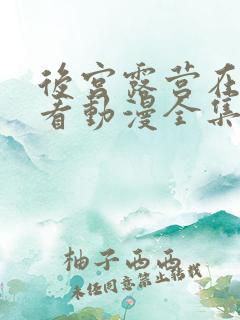 後宮露營在
看動漫全集
柚子西西
未经同意禁止转载